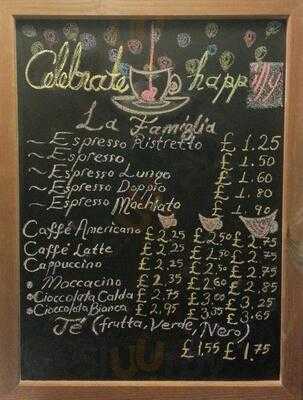 Celebrate happily
La Famiglia
~ Espresso Ristretto £ 1.25
~ Espresso £ 1.50
~ Espresso Lungo £ 1.60
~ Espresso Doppio £ 1.80
~ Espresso Machiato £ 1.90
Caffé Americano £ 2.25 £ 2.50 £ 2.75
Caffé Latte £ 2.25 £ 2.50 £ 2.75
Cappuccino £ 2.25 £ 2.50 £ 2.75
Maccacino £ 2.35 £ 2.60 £ 2.85
Cioccolata Calda £ 2.75 £ 3.00 £ 3.25
Cioccolata Bianca £ 2.95 £ 3.35 £ 3.65
Té (frutta, Verde, Nero)
£ 1,55 £ 1,75